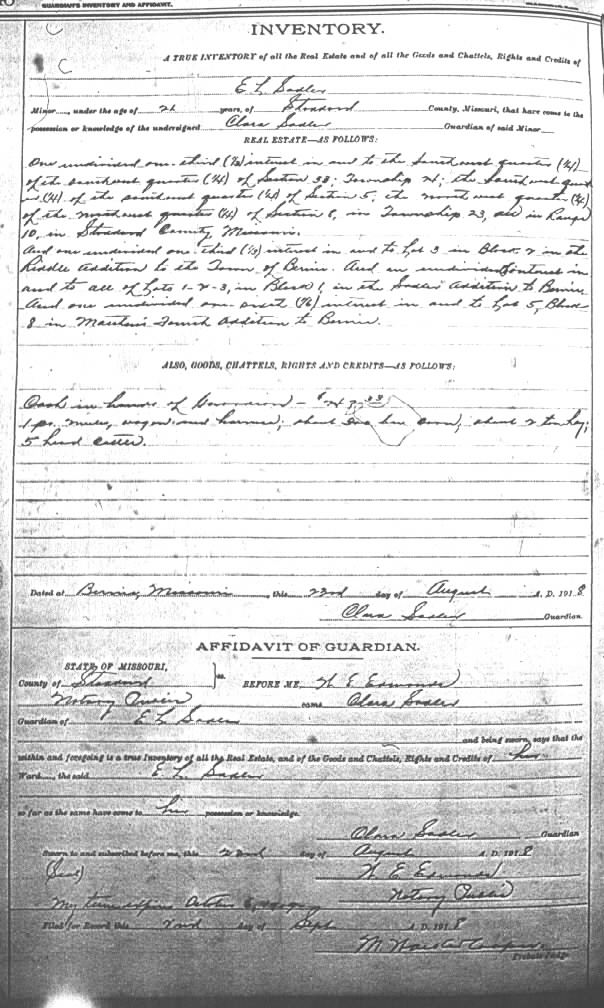 GUARDIAN'S INVENTORY AND AFFIDAVIT.
INVENTORY.
A TRUE INVENTORY of all the Real Estate and of all the Goods and Chattels, Rights and Credits of
E. L. Sadler
Minor, under the age of 21 years, of Stoddard County, Missouri, that have come to the
possession or knowledge of the undersigned Clara Sadler Guardian of said Minor
REAL ESTATE—AS FOLLOWS:
One undivided one-third (1/3) interest in and to the Southwest quarter (1/4)
of the southwest quarter (1/4) of Section 33; Township 24; the Southwest
(1/4) of the southwest quarter (1/4) of Section 5; the northwest quarter (1/4)
of the northwest quarter (1/4) of Section 8, in Township 23, all in Range
10, in Stoddard County, Missouri.
And one undivided one-third (1/3) interest in and to Lot 3 in Block 2 in the
Riddle Addition to the Town of Bernie. And an undivided interest in
and to all of Lots 1-2-3, in Block 1, in the Sadler Addition to Bernie
And one undivided one-sixth (1/6) interest in and to Lot 5, Block
8 in Fourth Addition to Bernie.
ALSO, GOODS, CHATTELS, RIGHTS AND CREDITS—AS FOLLOWS:
Cash in hands of
1 pr. mules, wagon and harness; about corn; about 2 ton hay;
5 head cattle.
Dated at Bernie, Missouri, this 22nd day of August A. D. 1918
Clara Sadler Guardian
AFFIDAVIT OF GUARDIAN.
STATE OF MISSOURI,
County of Stoddard ss. BEFORE ME, N E Edmonds
Notary Public came Clara Sadler
Guardian of E L Sadler
and being sworn, says that the
within and foregoing is a true Inventory of all the Real Estate, and of the Goods and Chattels, Rights and Credits of her
Ward, the said E. L. Sadler
so far as the same have come to her possession or knowledge.
Clara Sadler Guardian
Sworn to and subscribed before me, this 22nd day of August A. D. 1918
(Seal) N E Edmonds
Notary Public
My term expires October
Filed for Record this 2nd day of Sept A. D. 1918
Probate Judge